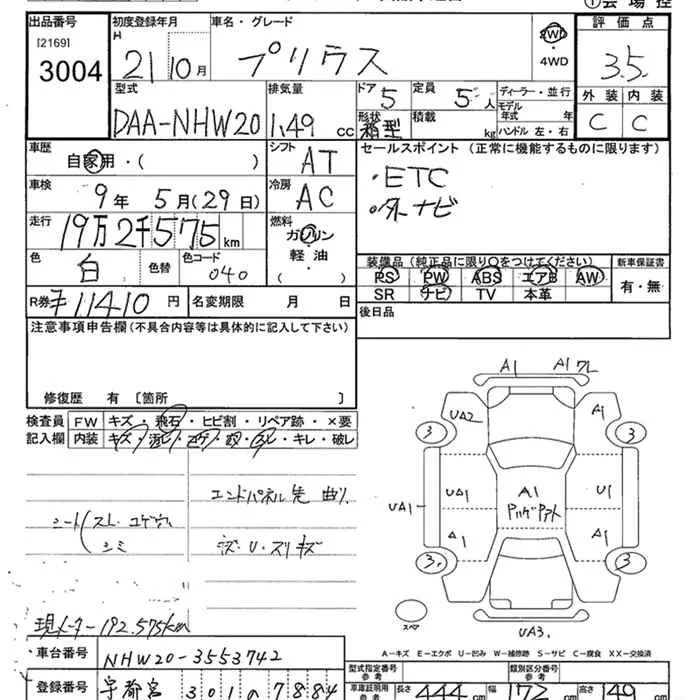 出品番号 初度登録年月 車名・グレード 評価点
[2169] H
3004 21 10月 プリウス 2WD 3.5
・4WD
型式 排気量 ドア 定員 ディーラー・並行 外装 内装
DAA-NHW20 1.49 cc 5 5人 モデル年式 年 C C
形状 箱型 積載 kg ハンドル 左・右
車歴 シフト セールスポイント (正常に機能するものに限ります)
自家用・( ) AT ・ETC
車検 冷房 ・外ナビ
9年 5月(29日) AC
走行 燃料
19万2千575km ガソリン
色 色替 色コード 軽油
白 040 ( )
装備品(純正品に限り○をつけてください) 新車保証書
PS PW ABS エアB AW 有・無
SR ナビ TV 本革
R券 〒11410円 名変期限 月 日
後日品
注意事項申告欄(不具合内容等は具体的に記入して下さい)
修復歴 有 [箇所 ]
検査員 FW キズ・飛石・ヒビ割・リペア跡・×要
記入欄 内装 キズ・汚レ・コゲ・穴・スレ・キレ・破レ
エンドパネル先曲り
シート(スレ・コゲ穴
シミ
A1 A1
UA2 A1
3 3
UA1 UA1 A1 U1
A1 A1
3 3
スペア UA3
現メーター192,575km
A-キズ E-エクボ U-凹み W-補修跡 S-サビ C-腐食 XX-交換済
車台番号 NHW20-3553742
型式指定番号 参考 類別区分番号 参考
登録番号 宇都宮 301 の 7884
車庫証明用 参考 長さ 444cm 幅 172cm 高さ 149cm